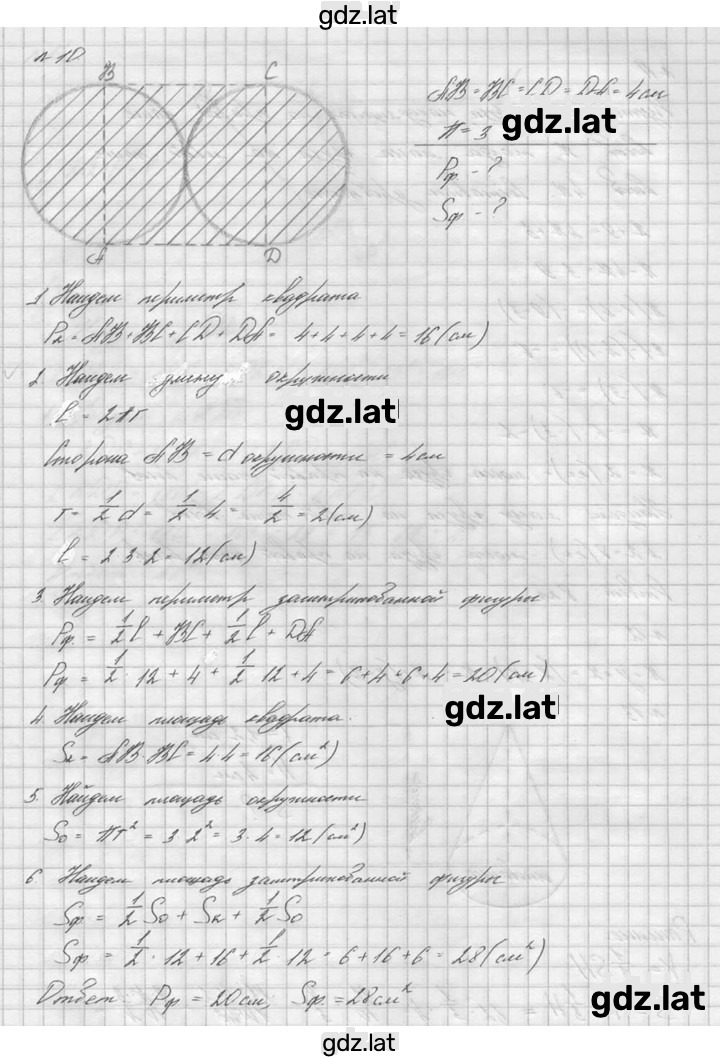 gdz.lat
№ 10
B C
AB = BC = CD = DA = 4 см
π = 3
gdz.lat
Pф. - ?
Sф. - ?
A D
1. Найдем периметр квадрата
Pк = AB + BC + CD + DA = 4+4+4+4 = 16 (см)
2. Найдем длину окружности
l = 2πr
gdz.lat
Сторона AB = d окружности = 4 см
r = 1/2 d = 1/2 · 4 = 4/2 = 2 (см)
l = 2 · 3 · 2 = 12 (см)
3. Найдем периметр заштрихованной фигуры
Pф. = 1/2 l + BC + 1/2 l + DA
Pф. = 1/2 · 12 + 4 + 1/2 · 12 + 4 = 6+4+6+4 = 20 (см)
gdz.lat
4. Найдем площадь квадрата.
Sк = AB · BC = 4 · 4 = 16 (см²)
5. Найдем площадь окружности
So = πr² = 3 · 2² = 3 · 4 = 12 (см²)
6. Найдем площадь заштрихованной фигуры
Sф. = 1/2 So + Sк + 1/2 So
Sф. = 1/2 · 12 + 16 + 1/2 · 12 = 6 + 16 + 6 = 28 (см²)
Ответ: Pф = 20 см, Sф. = 28 см²
gdz.lat
gdz.lat